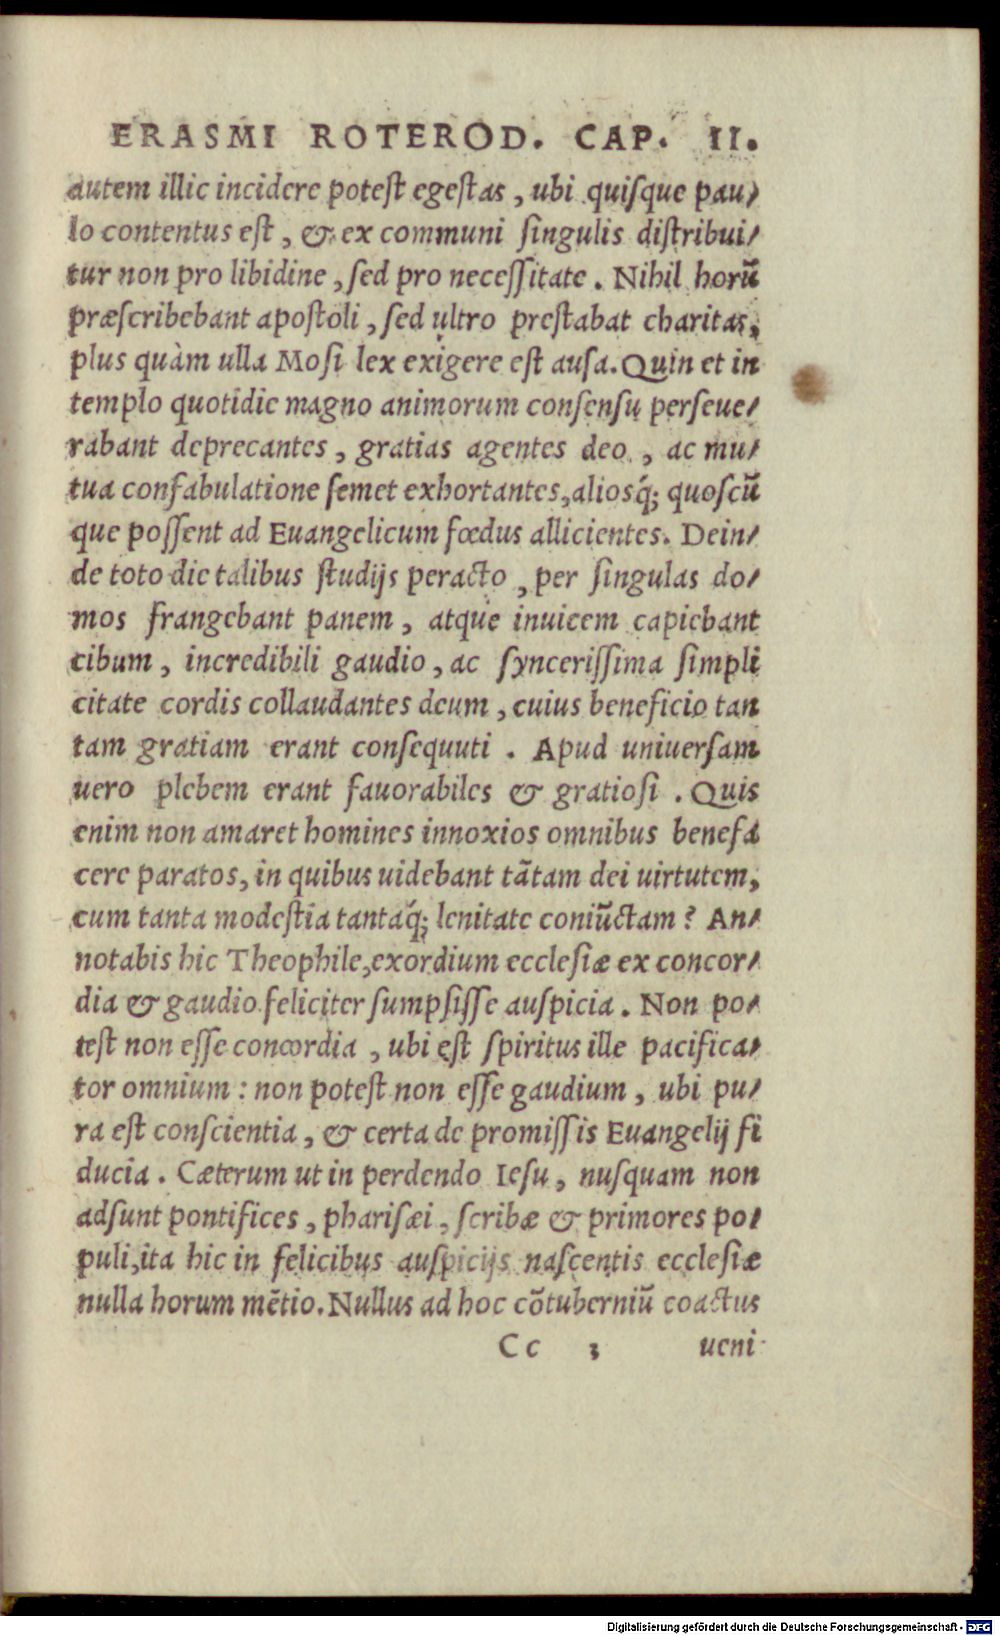 ERASMI ROTEROD. CAP. II.
autem illic incidere potest egestas, ubi quisque pau-
lo contentus est, & ex communi singulis distribui-
tur non pro libidine, sed pro necessitate. Nihil horū
præscribebant apostoli, sed ultro prestabat charitas,
plus quàm ulla Mosi lex exigere est ausa. Quin et in
templo quotidie magno animorum consensu perseue-
rabant deprecantes, gratias agentes deo, ac mu-
tua confabulatione semet exhortantes, aliosq́; quoscū
que possent ad Euangelicum fœdus allicientes. Dein-
de toto die talibus studijs peracto, per singulas do-
mos frangebant panem, atque inuicem capiebant
cibum, incredibili gaudio, ac syncerissima simpli
citate cordis collaudantes deum, cuius beneficio tan
tam gratiam erant consequuti. Apud uniuersam
uero plebem erant fauorabiles & gratiosi. Quis
enim non amaret homines innoxios omnibus benefa
cere paratos, in quibus uidebant tātam dei uirtutem,
cum tanta modestia tantaq́; lenitate coniūctam? An-
notabis hic Theophile, exordium ecclesiæ ex concor-
dia & gaudio feliciter sumpsisse auspicia. Non po-
test non esse concordia, ubi est spiritus ille pacifica-
tor omnium: non potest non esse gaudium, ubi pu-
ra est conscientia, & certa de promissis Euangelij fi
ducia. Cæterum ut in perdendo Iesu, nusquam non
adsunt pontifices, pharisæi, scribæ & primores po-
puli, ita hic in felicibus auspicijs nascentis ecclesiæ
nulla horum mētio. Nullus ad hoc cōtuberniū coactus
Cc 3 ueni
Digitalisierung gefördert durch die Deutsche Forschungsgemeinschaft - DFG